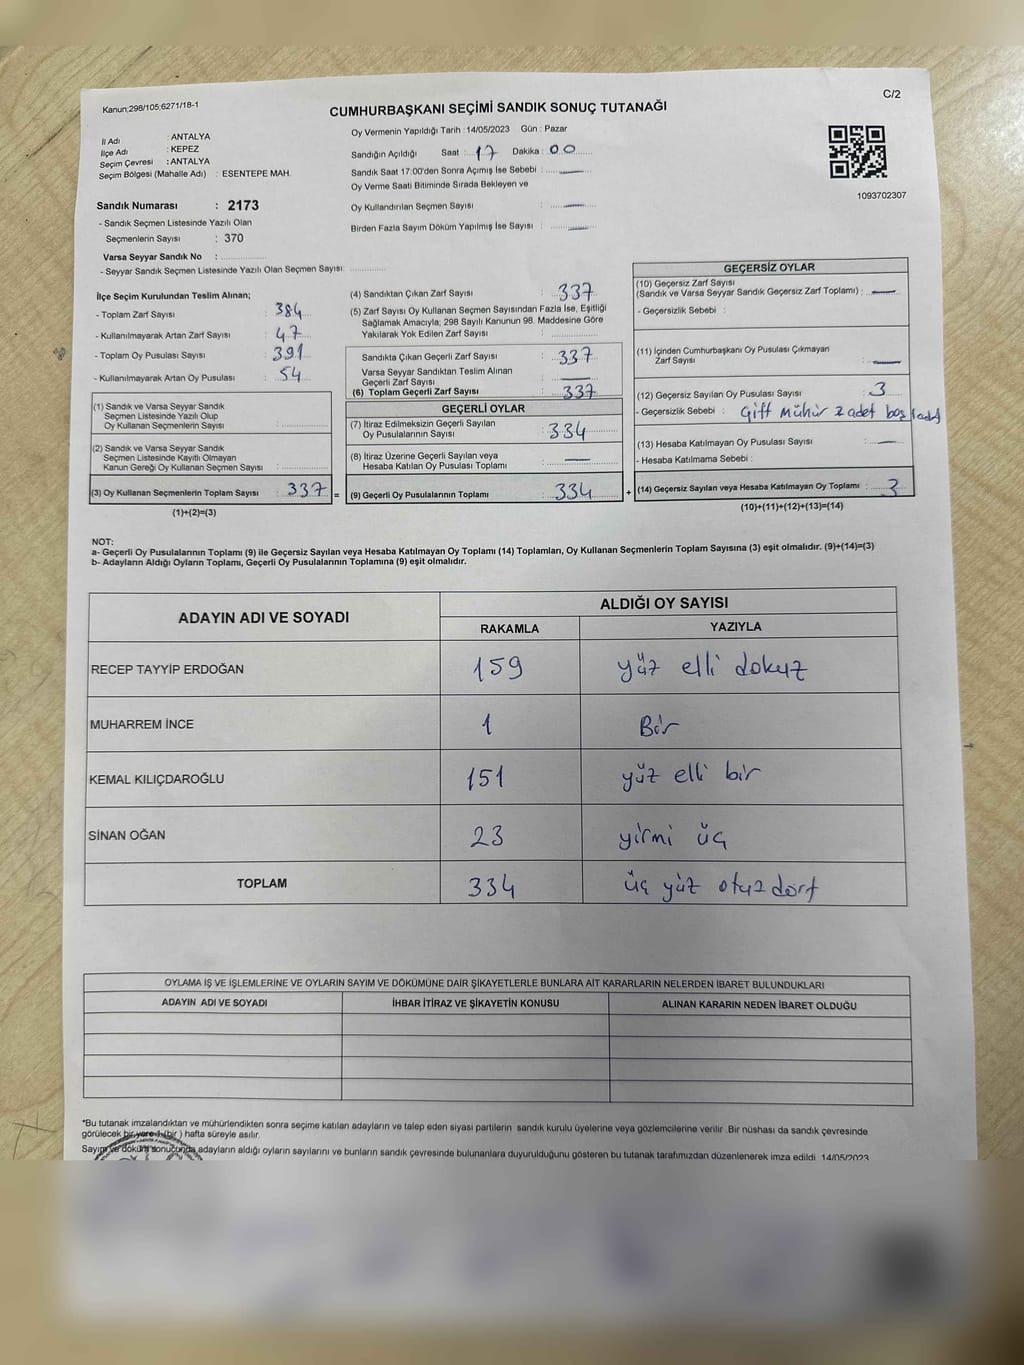 Kanun;298/105;6271/18-1
C/2
CUMHURBAŞKANI SEÇİMİ SANDIK SONUÇ TUTANAĞI
İl Adı : ANTALYA
İlçe Adı : KEPEZ
Seçim Çevresi : ANTALYA
Seçim Bölgesi (Mahalle Adı) : ESENTEPE MAH.
Sandık Numarası : 2173
- Sandık Seçmen Listesinde Yazılı Olan
Seçmenlerin Sayısı : 370
Varsa Seyyar Sandık No :
- Seyyar Sandık Seçmen Listesinde Yazılı Olan Seçmen Sayısı:
Oy Vermenin Yapıldığı Tarih : 14/05/2023 Gün : Pazar
Sandığın Açıldığı Saat : 17 Dakika : 00
Sandık Saat 17:00'den Sonra Açımış İse Sebebi : —
Oy Verme Saati Bitiminde Sırada Bekleyen ve
Oy Kullandırılan Seçmen Sayısı : —
Birden Fazla Sayım Döküm Yapılmış İse Sayısı : —
1093702307
İlçe Seçim Kurulundan Teslim Alınan;
- Toplam Zarf Sayısı : 384
- Kullanılmayarak Artan Zarf Sayısı : 47
- Toplam Oy Pusulası Sayısı : 391
- Kullanılmayarak Artan Oy Pusulası : 54
(1) Sandık ve Varsa Seyyar Sandık
Seçmen Listesinde Yazılı Olup
Oy Kullanan Seçmenlerin Sayısı :
(2) Sandık ve Varsa Seyyar Sandık
Seçmen Listesinde Kayıtlı Olmayan
Kanun Gereği Oy Kullanan Seçmen Sayısı :
(3) Oy Kullanan Seçmenlerin Toplam Sayısı : 337 =
(1)+(2)=(3)
(4) Sandıktan Çıkan Zarf Sayısı : 337
(5) Zarf Sayısı Oy Kullanan Seçmen Sayısından Fazla İse, Eşitliği
Sağlamak Amacıyla; 298 Sayılı Kanunun 98. Maddesine Göre
Yakılarak Yok Edilen Zarf Sayısı :
Sandıkta Çıkan Geçerli Zarf Sayısı : 337
Varsa Seyyar Sandıktan Teslim Alınan
Geçerli Zarf Sayısı : —
(6) Toplam Geçerli Zarf Sayısı : 337
GEÇERLİ OYLAR
(7) İtiraz Edilmeksizin Geçerli Sayılan
Oy Pusulalarının Sayısı : 334
(8) İtiraz Üzerine Geçerli Sayılan veya
Hesaba Katılan Oy Pusulası Toplamı : —
(9) Geçerli Oy Pusulalarının Toplamı : 334 +
GEÇERSİZ OYLAR
(10) Geçersiz Zarf Sayısı
(Sandık ve Varsa Seyyar Sandık Geçersiz Zarf Toplamı) : —
- Geçersizlik Sebebi :
(11) İçinden Cumhurbaşkanı Oy Pusulası Çıkmayan
Zarf Sayısı : —
(12) Geçersiz Sayılan Oy Pusulası Sayısı : 3
- Geçersizlik Sebebi : Çift mühür 2 adet boş 1 adet
(13) Hesaba Katılmayan Oy Pusulası Sayısı : —
- Hesaba Katılmama Sebebi :
(14) Geçersiz Sayılan veya Hesaba Katılmayan Oy Toplamı : 3
(10)+(11)+(12)+(13)=(14)
NOT:
a- Geçerli Oy Pusulalarının Toplamı (9) ile Geçersiz Sayılan veya Hesaba Katılmayan Oy Toplamı (14) Toplamları, Oy Kullanan Seçmenlerin Toplam Sayısına (3) eşit olmalıdır. (9)+(14)=(3)
b- Adayların Aldığı Oyların Toplamı, Geçerli Oy Pusulalarının Toplamına (9) eşit olmalıdır.
ADAYIN ADI VE SOYADI ALDIĞI OY SAYISI
RAKAMLA YAZIYLA
RECEP TAYYİP ERDOĞAN 159 yüz elli dokuz
MUHARREM İNCE 1 Bir
KEMAL KILIÇDAROĞLU 151 yüz elli bir
SİNAN OĞAN 23 yirmi üç
TOPLAM 334 üç yüz otuz dört
OYLAMA İŞ VE İŞLEMLERİNE VE OYLARIN SAYIM VE DÖKÜMÜNE DAİR ŞİKAYETLERLE BUNLARA AİT KARARLARIN NELERDEN İBARET BULUNDUKLARI
ADAYIN ADI VE SOYADI İHBAR İTİRAZ VE ŞİKAYETİN KONUSU ALINAN KARARIN NEDEN İBARET OLDUĞU
*Bu tutanak imzalandıktan ve mühürlendikten sonra seçime katılan adayların ve talep eden siyasi partilerin sandık kurulu üyelerine veya gözlemcilerine verilir .Bir nüshası da sandık çevresinde
görülecek bir yere 1 (bir ) hafta süreyle asılır.
Sayım ve döküm sonucunda adayların aldığı oyların sayılarını ve bunların sandık çevresinde bulunanlara duyurulduğunu gösteren bu tutanak tarafımızdan düzenlenerek imza edildi. 14/05/2023